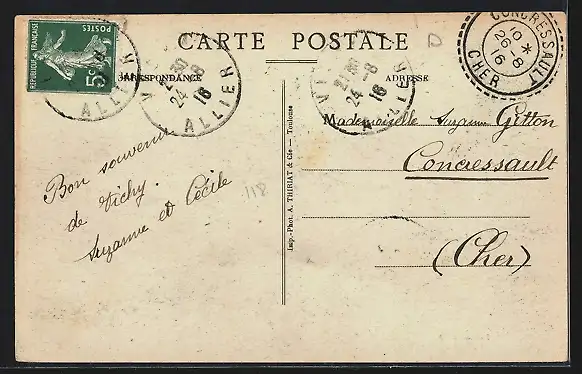 CARTE POSTALE
CORRESPONDANCE
ADRESSE
POSTES
RÉPUBLIQUE FRANÇAISE
5c
ALLIER
VI
21 30
24 -8
16
ALLIER
VI
21 30
24 -8
16
ALLIER
CONCRESSAULT
10 *
26 - 8
16
CHER
D
Bon souvenir
de Vichy.
Suzanne et Cécile
118
Imp.-Phot. A. THIRIAT & Cie — Toulouse
Mademoiselle Suzanne Gitton
Concressault
(Cher)